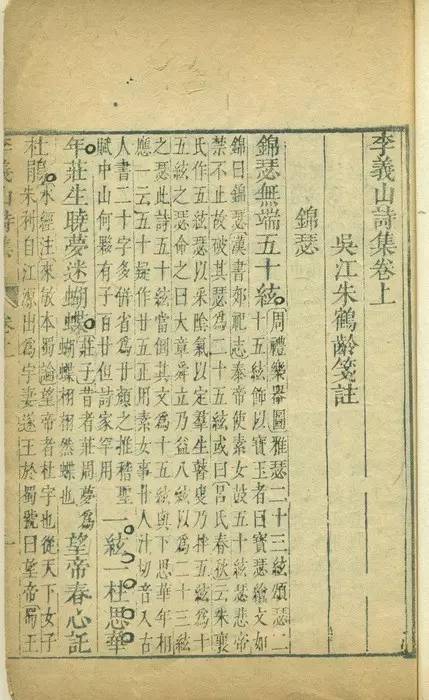 李義山詩集卷上
吳江朱鶴齡箋註
錦瑟
錦瑟無端五十絃
周禮樂器圖雅瑟二十三絃頌瑟二
十五絃飾以寶玉者曰寶瑟繪文如
錦曰錦瑟漢書郊祀志泰帝使素女鼓五十絃瑟悲帝
禁不止故破其瑟為二十五絃或曰呂氏春秋云朱襄
氏作五絃瑟以采陰氣以定羣生瞽叟乃拌五絃為十
五絃瑟命之曰大章舜立乃益八絃以為二十三絃
之瑟此詩五十絃當倒其文為十五絃與下思華年相
應一云五十疑作廿五正用素女事廿人汁切音入古
人書二十字多併省為廿顏之推稽聖
賦中山何夥有子百廿但詩家罕用
一絃一柱思華
年莊生曉夢迷蝴蝶
莊子昔者莊周夢為
蝴蝶栩栩然蝶也
望帝春心託
杜鵑
水經注來敏本蜀論望帝者杜宇也從天下女子
朱利自江源出為宇妻遂王於蜀號曰望帝蜀王
李義山詩集